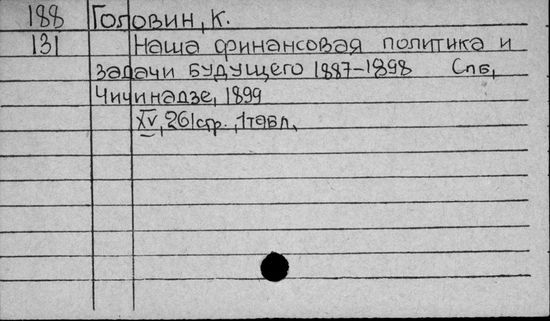 188 Головин, К.
131 Наша финансовая политика и
задачи будущего 1887-1898 Спб,
Чичинадзе, 1899
XV, 261 стр., 1 табл,